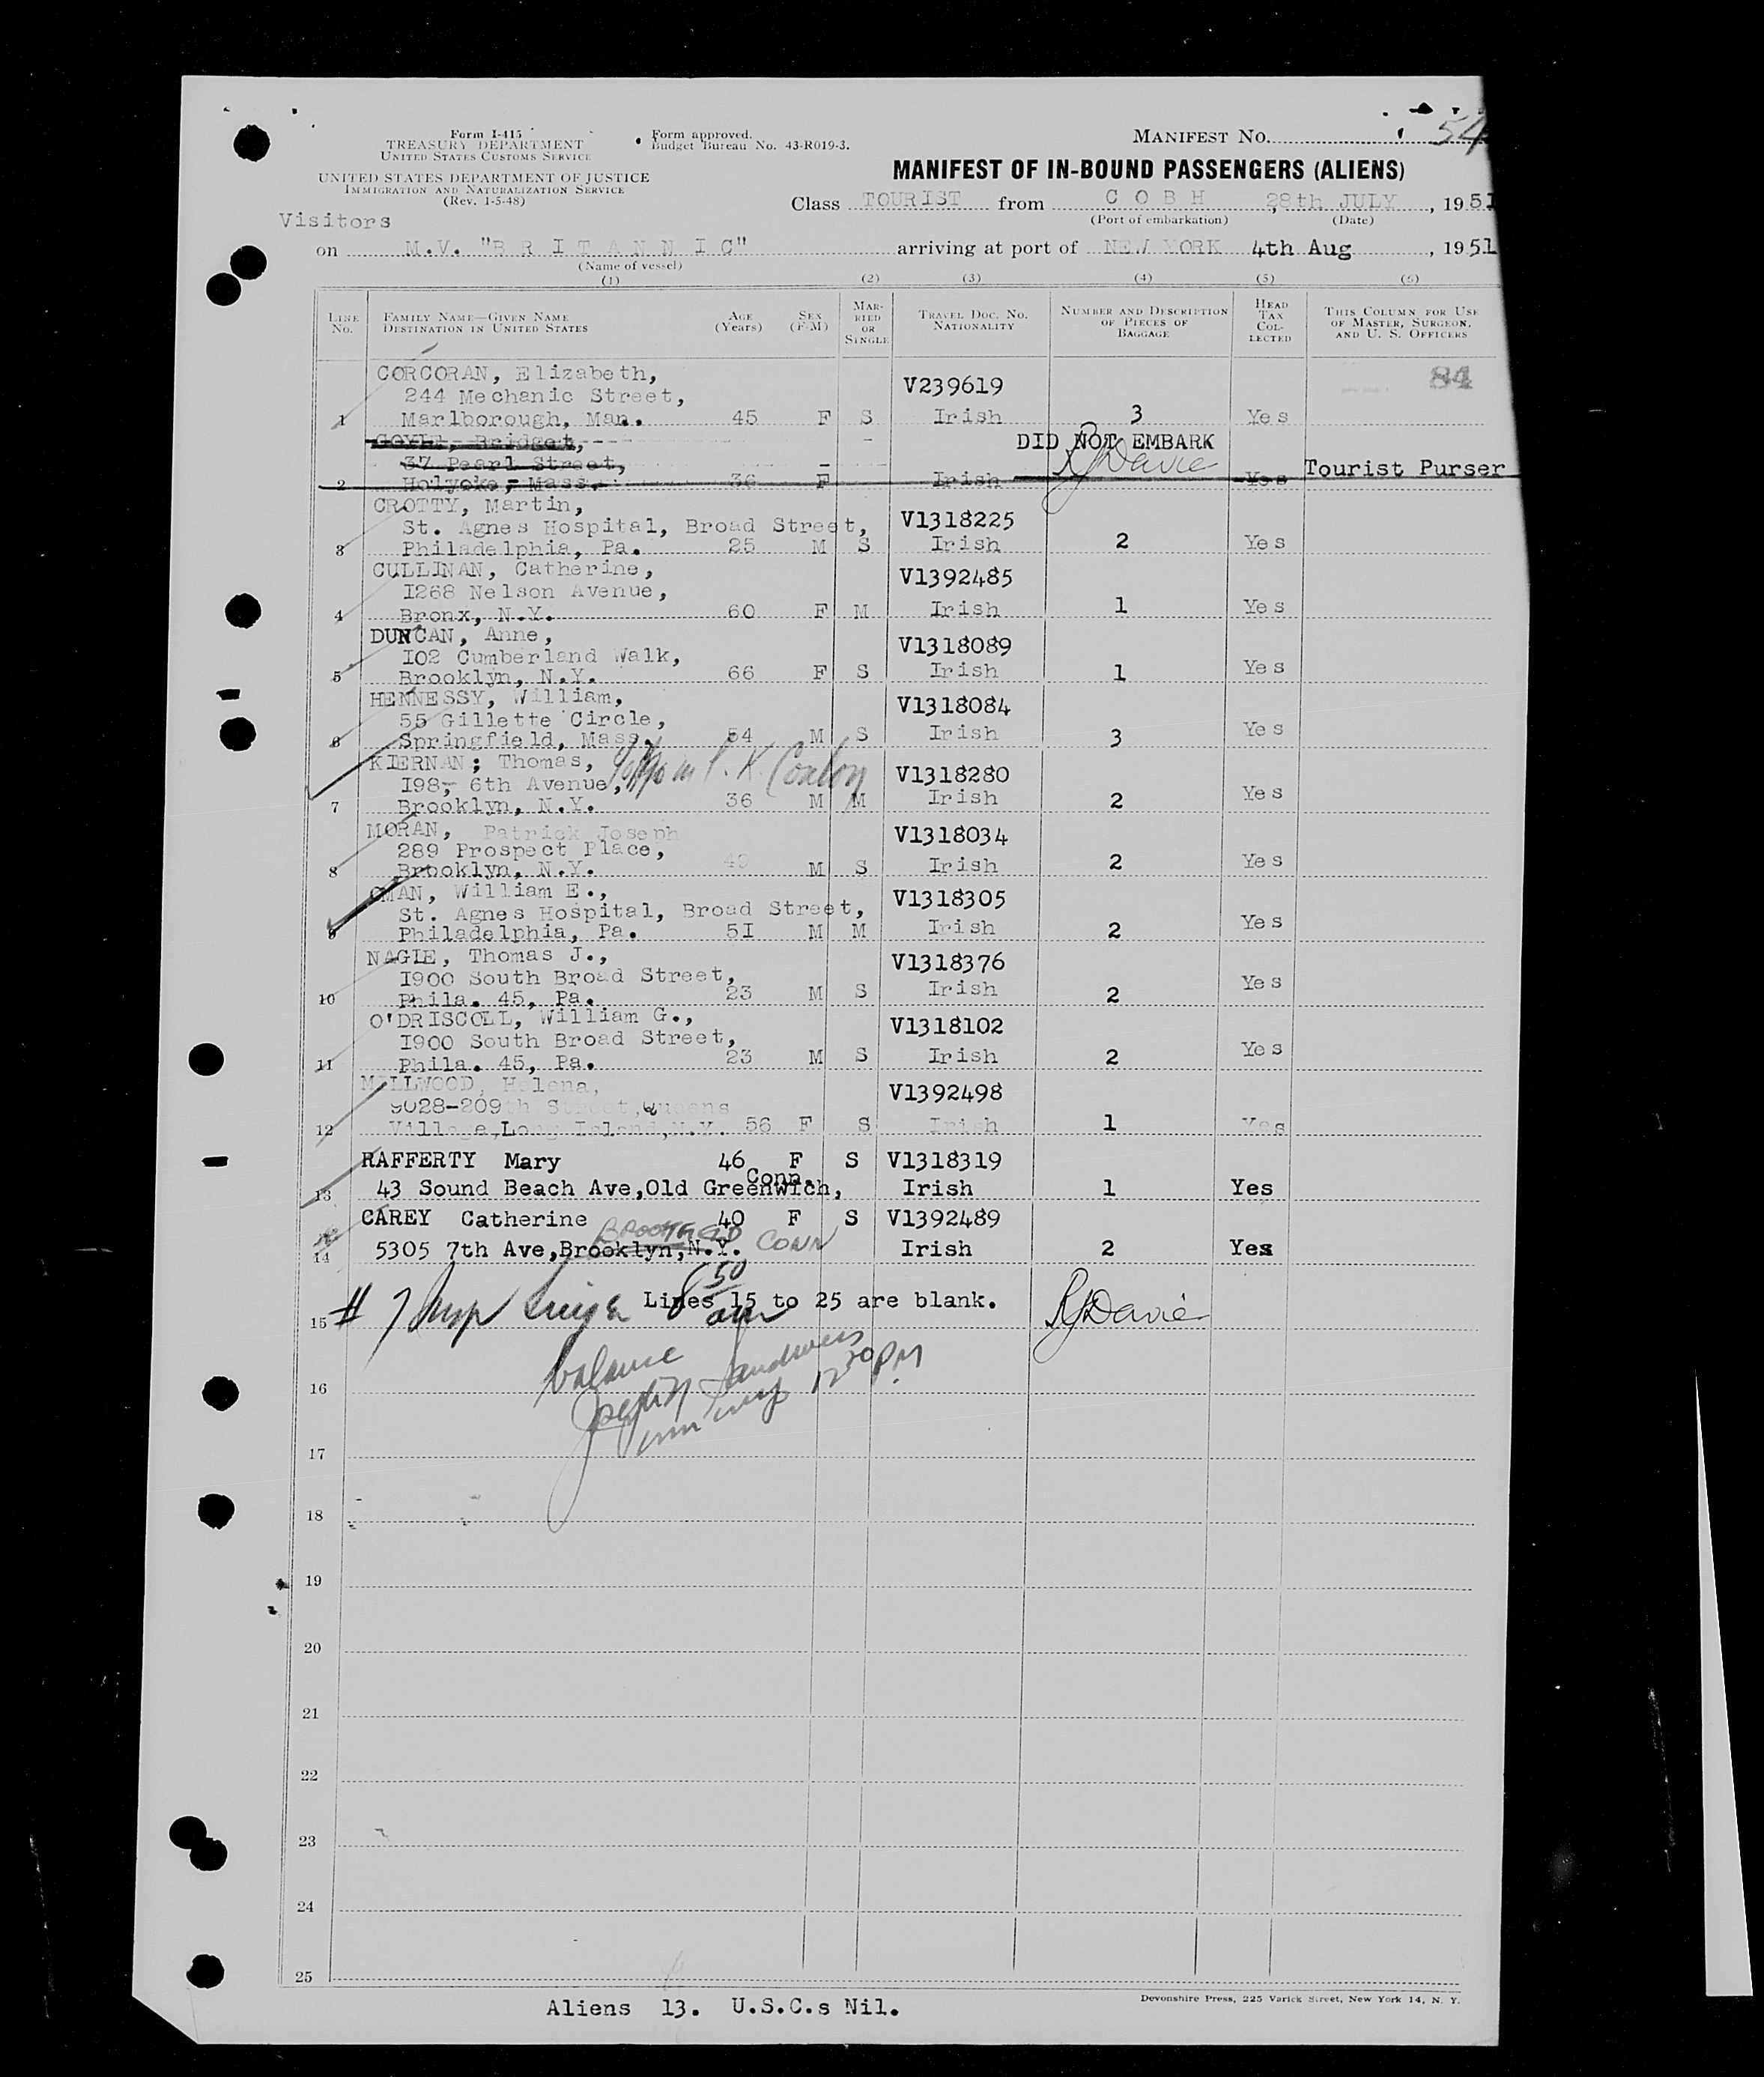 Form I-415
TREASURY DEPARTMENT
UNITED STATES CUSTOMS SERVICE
UNITED STATES DEPARTMENT OF JUSTICE
IMMIGRATION AND NATURALIZATION SERVICE
(Rev. 1-5-48)
Form approved.
Budget Bureau No. 43-R019-3.
MANIFEST NO. 54
MANIFEST OF IN-BOUND PASSENGERS (ALIENS)
Class TOURIST from C O B H, 28th JULY, 1951
(Port of embarkation) (Date)
Visitors
on M.V. "B R I T A N N I C" arriving at port of NEW YORK 4th Aug, 1951
(Name of vessel)
(1) (2) (3) (4) (5) (6)
LINE No. FAMILY NAME—GIVEN NAME DESTINATION IN UNITED STATES AGE (Years) SEX (F-M) MARRIED OR SINGLE TRAVEL DOC. NO. NATIONALITY NUMBER AND DESCRIPTION OF PIECES OF BAGGAGE HEAD TAX COLLECTED THIS COLUMN FOR USE OF MASTER, SURGEON, AND U. S. OFFICERS
84
CORCORAN, Elizabeth, V239619
244 Mechanic Street,
1 Marlborough, Man. 45 F S Irish 3 Yes
COYLE, Bridget, DID NOT EMBARK
37 Pearl Street, RJDavie Tourist Purser
2 Holyoke, Mass. 36 F Irish Yes
CROTTY, Martin,
St. Agnes Hospital, Broad Street, V1318225
3 Philadelphia, Pa. 25 M S Irish 2 Yes
CULLINAN, Catherine, V1392485
I268 Nelson Avenue,
4 Bronx, N.Y. 60 F M Irish 1 Yes
DUNCAN, Anne, V1318089
I02 Cumberland Walk,
5 Brooklyn, N.Y. 66 F S Irish 1 Yes
HENNESSY, William, V1318084
55 Gillette Circle,
6 Springfield, Mass. 54 M S Irish 3 Yes
KIERNAN; Thomas, V1318280
I98, 6th Avenue,
7 Brooklyn, N.Y. 36 M M Irish 2 Yes
MORAN, Patrick Joseph V1318034
289 Prospect Place,
8 Brooklyn, N.Y. 49 M S Irish 2 Yes
OMAN, William E., V1318305
St. Agnes Hospital, Broad Street,
9 Philadelphia, Pa. 5I M M Irish 2 Yes
NAGLE, Thomas J., V1318376
I900 South Broad Street,
10 Phila. 45, Pa. 23 M S Irish 2 Yes
O'DRISCOLL, William G., V1318102
I900 South Broad Street,
11 Phila. 45, Pa. 23 M S Irish 2 Yes
MILLWOOD, Helena, V1392498
9028-209th Street, Queens
12 Village, Long Island, N.Y. 56 F S Irish 1 Yes
RAFFERTY Mary 46 F S V1318319
Conn.
13 43 Sound Beach Ave,Old Greenwich, Irish 1 Yes
CAREY Catherine 40 F S V1392489
BROOKFIELD CONN
14 5305 7th Ave,Brooklyn,N.Y. Irish 2 Yes
# 7 8 50 am
15 Lines 15 to 25 are blank. RJDavie
balance
12 30 PM
16
17
18
19
20
21
22
23
24
25
Aliens 13. U.S.C.s Nil.
Devonshire Press, 225 Varick Street, New York 14, N. Y.